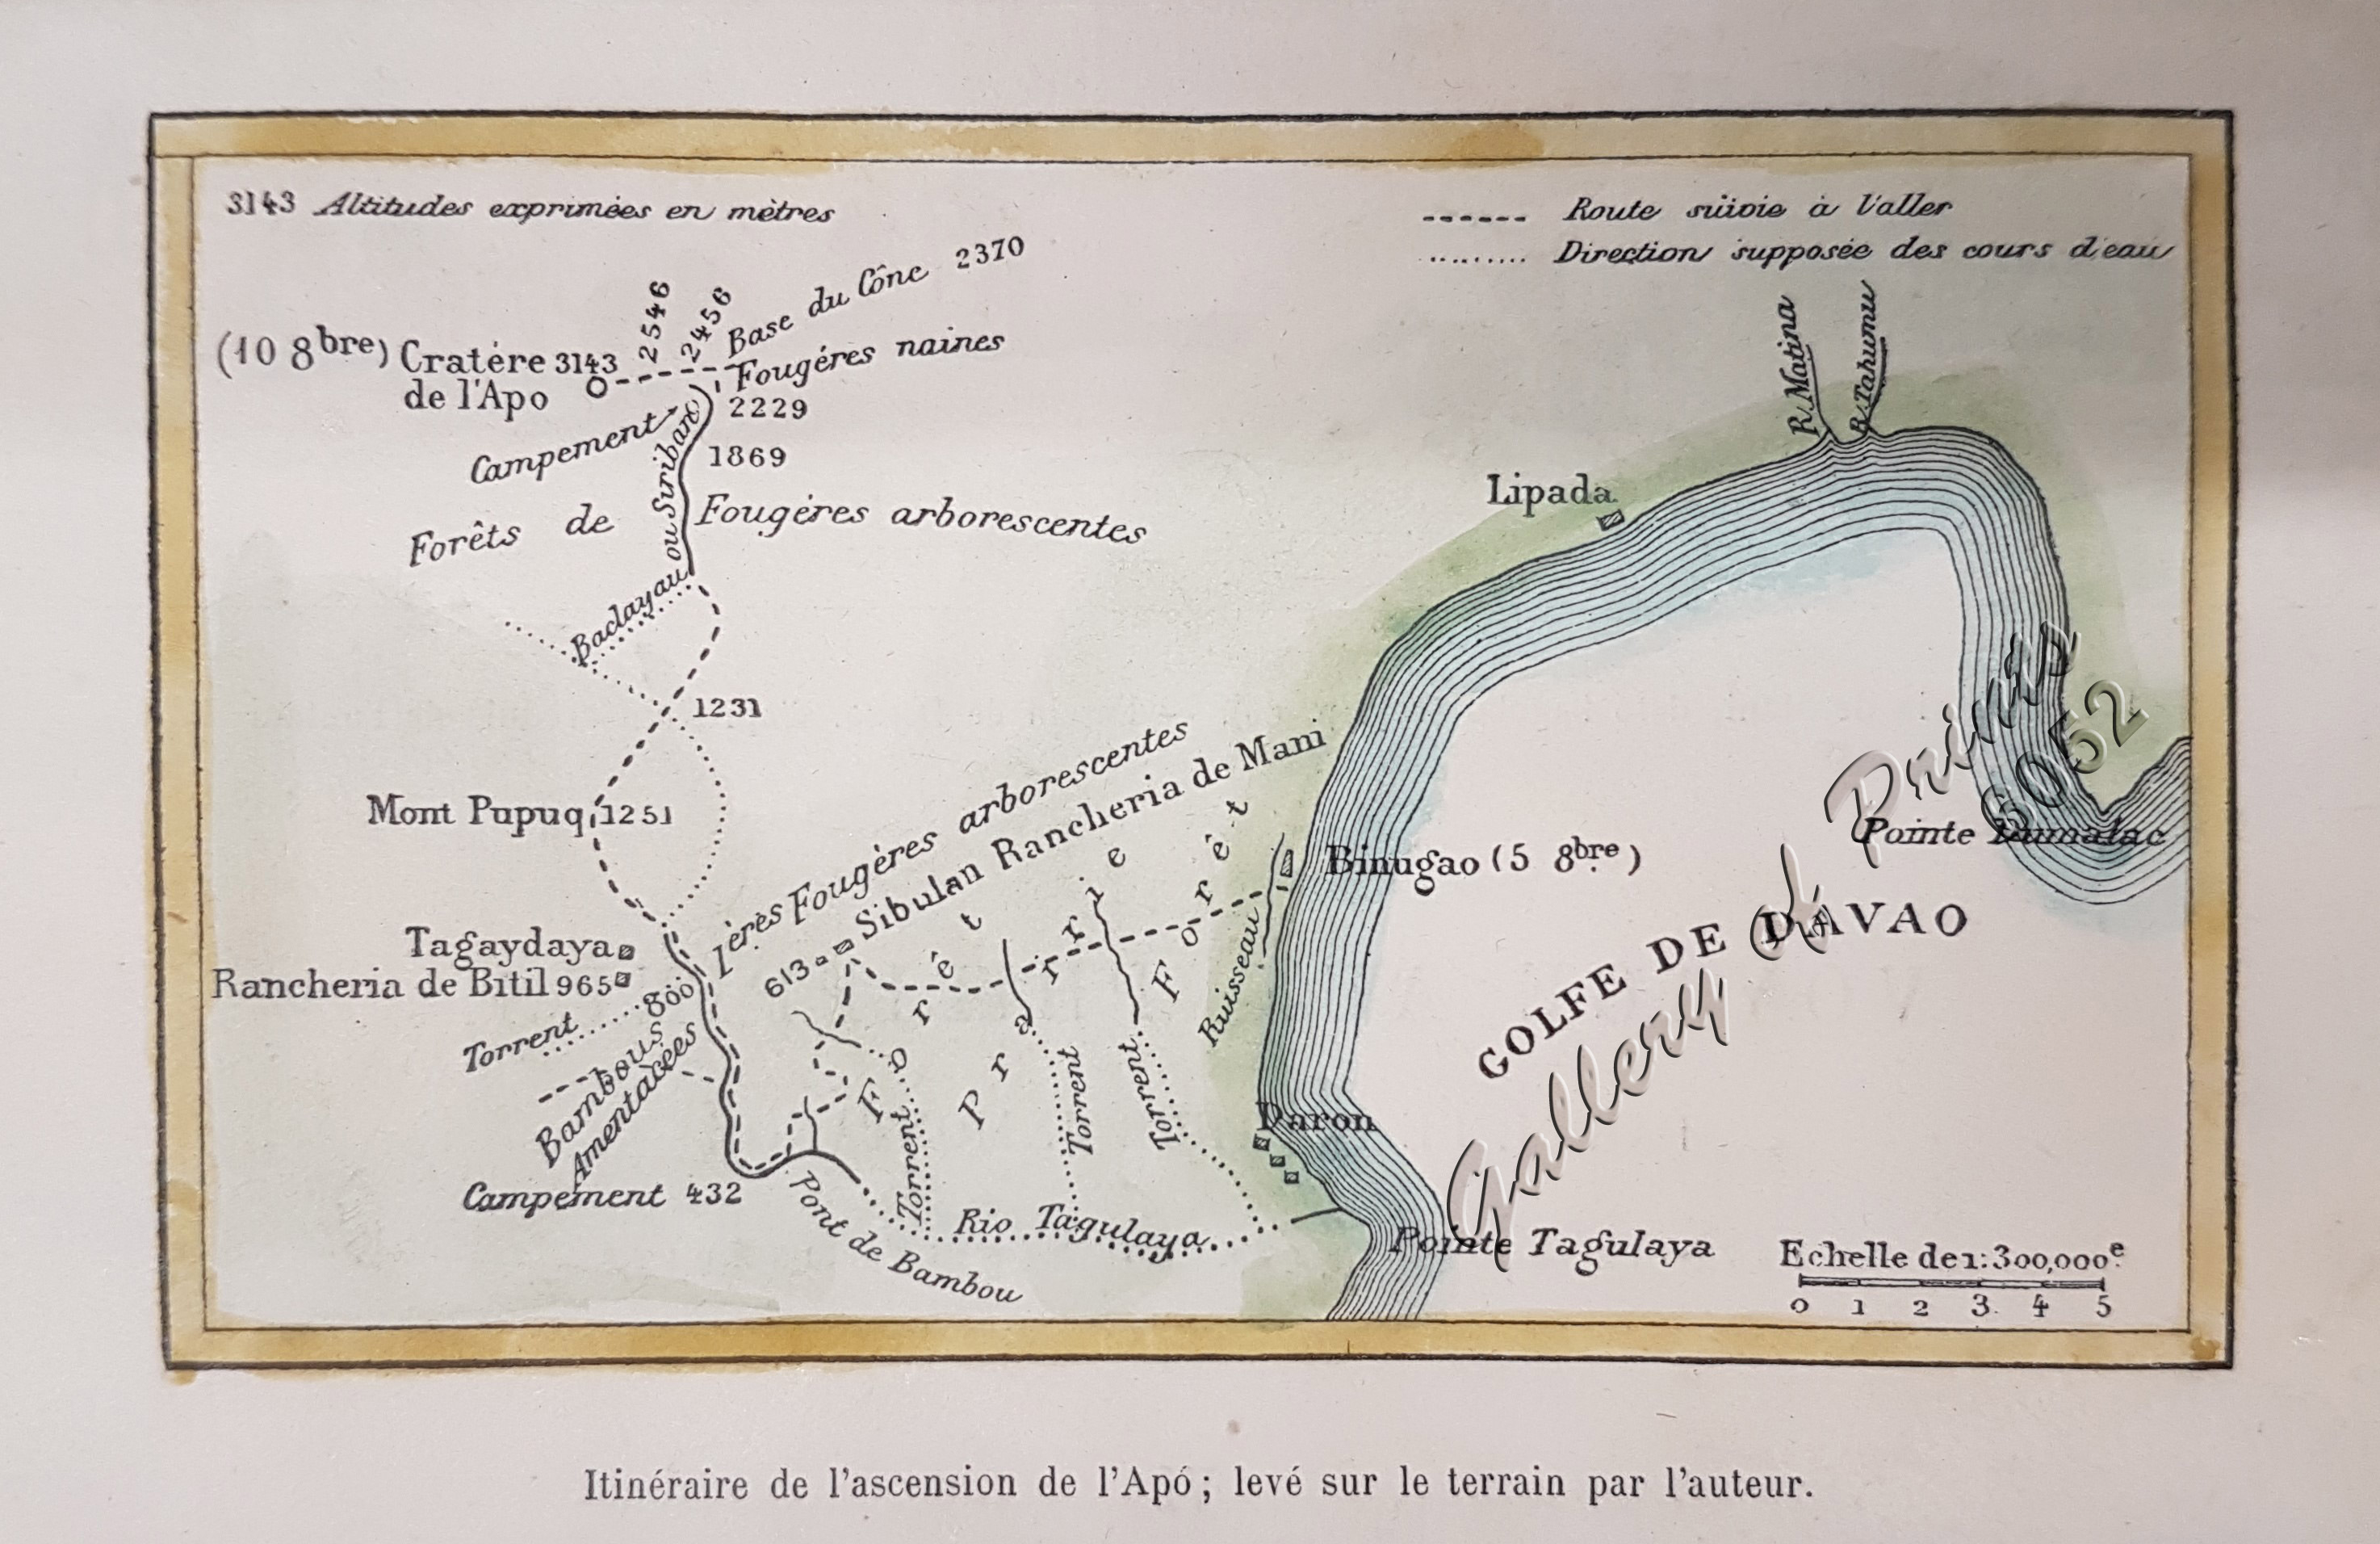 3143 Altitudes exprimées en mètres
Route suivie à l'aller
Direction supposée des cours d'eau
(10 8bre) Cratère 3143
de l'Apo
2546
2456
Base du Cône 2370
Fougéres naines
2229
Campement
1869
Forêts de Fougères arborescentes
Baclayau ou Siriban
1231
Mont Pupuq 1251
1ères Fougères arborescentes
Sibulan Rancheria de Mani
613
Tagaydaya
Rancheria de Bitil 965
800
Torrent
Bambous
Amentacées
Campement 432
Pont de Bambou
Forêt
Prairie
Forêt
Torrent
Torrent
Torrent
Ruisseau
Rio Tagulaya
R. Matina
R. Tahumu
Lipada
Binugao (5 8bre)
Daron
Pointe Tagulaya
GOLFE DE DAVAO
Pointe Dumalac
Gallery of Prints
6052
Echelle de 1:300,000e
0 1 2 3 4 5
Itinéraire de l'ascension de l'Apó ; levé sur le terrain par l'auteur.